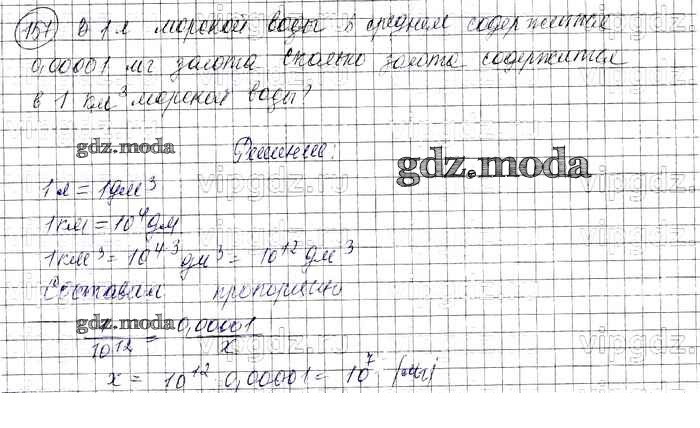 157 В 1 л морской воды в среднем содержится
0,00001 мг золота сколько золота содержится
в 1 км³ морской воды?
gdz.moda Решение:
gdz.moda
1 л = 1 дм³ vipgdz.ru vipgdz.ru
1 км = 10⁴ дм
1 км³ = 10⁴·³ дм³ = 10¹² дм³
Составим пропорцию
gdz.moda
1/10¹² = 0,00001/x
vipgdz.ru
x = 10¹² 0,00001 = 10⁷ (мг)